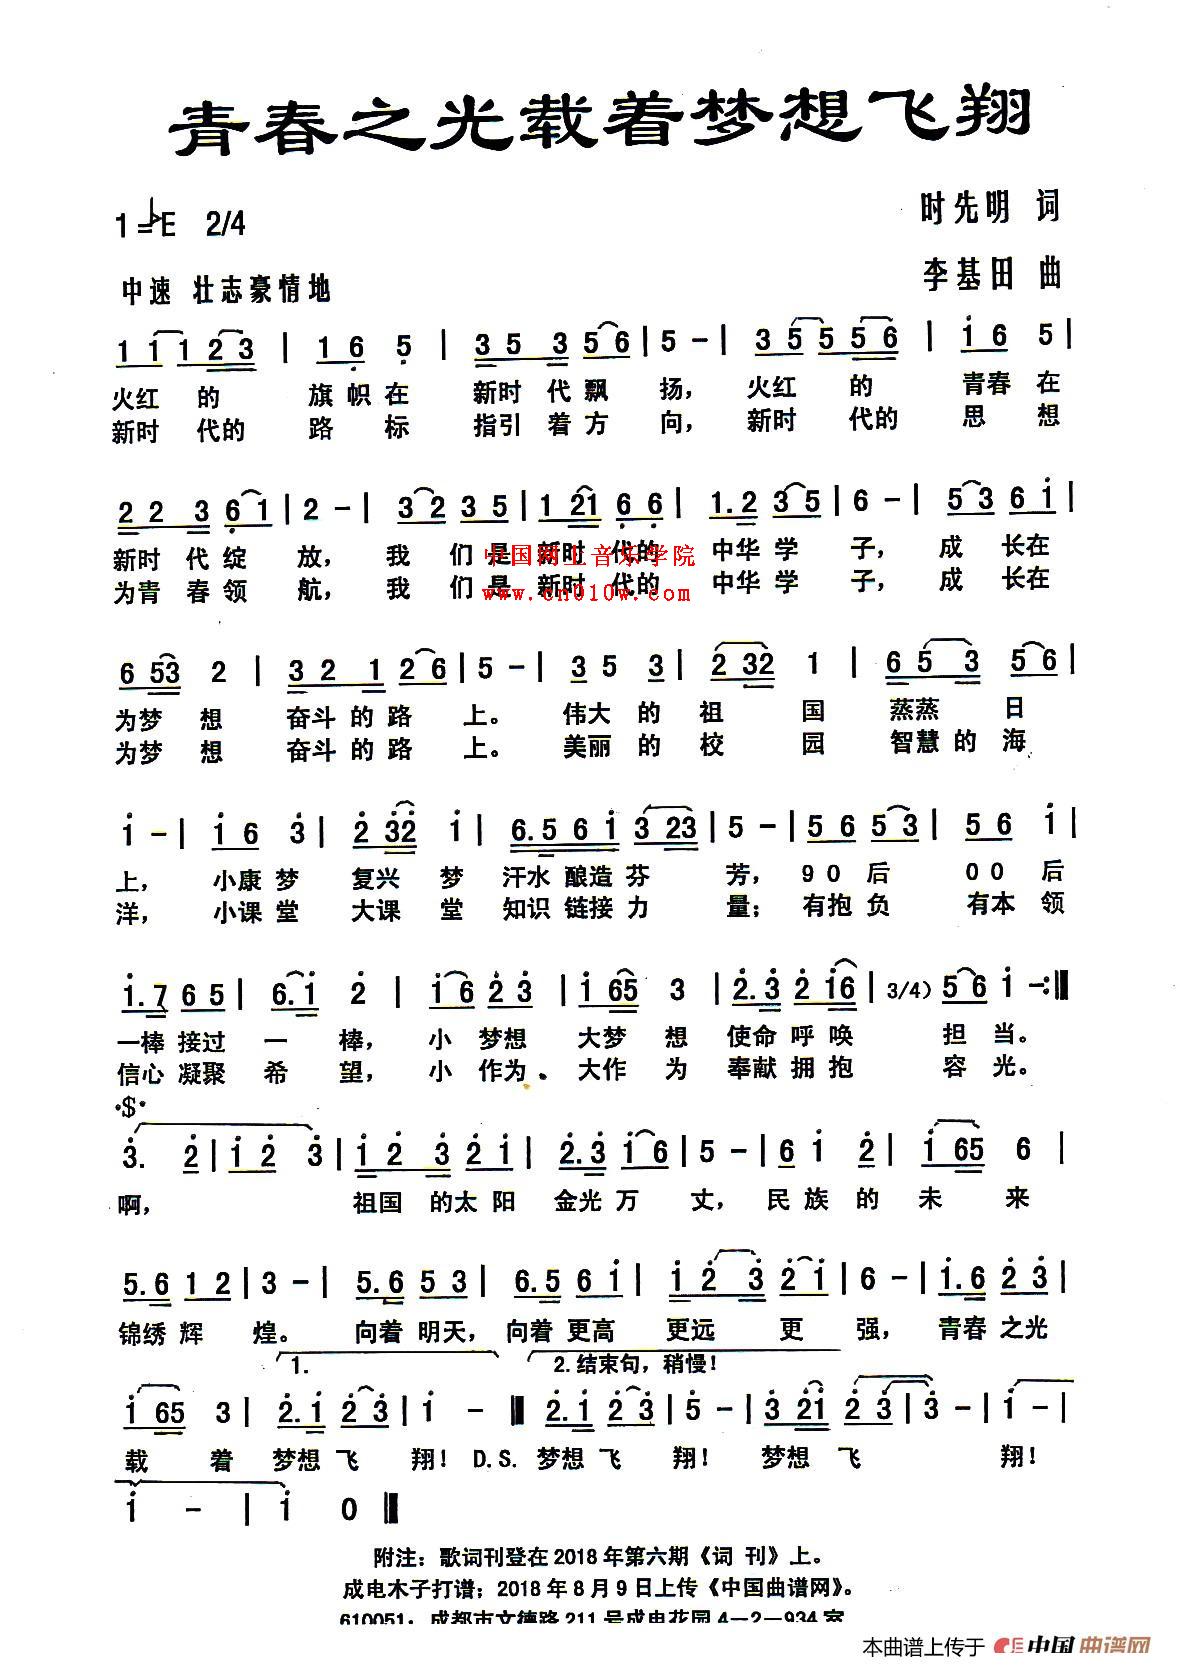 青春之光载着梦想飞翔
1=♭E 2/4
时先明 词
中速 壮志豪情地
李基田 曲
1 1 1 2 3 | 1 6 5 | 3 5 3 5 6 | 5 - | 3 5 5 5 6 | i 6 5 |
火红 的 旗 帜 在 新时 代 飘 扬， 火红 的 青春 在
新时 代的 路 标 指引 着 方 向， 新时 代的 思 想
2 2 3 6 1 | 2 - | 3 2 3 5 | 1 21 6 6 | 1.2 3 5 | 6 - | 5 3 6 i |
新时 代 绽 放， 我 们 是 新时 代的 中华 学 子， 成 长在
为青 春 领 航， 我 们 是 新时 代的 中华 学 子， 成 长在
中国网上音乐学院
www.cn010w.com
6 53 2 | 3 2 1 2 6 | 5 - | 3 5 3 | 2 32 1 | 6 5 3 5 6 |
为梦 想 奋斗 的 路 上。 伟大 的 祖 国 蒸蒸 日
为梦 想 奋斗 的 路 上。 美丽 的 校 园 智慧 的 海
i - | i 6 3 | 2 32 i | 6.5 6 i 3 23 | 5 - | 5 6 5 3 | 5 6 i |
上， 小康 梦 复兴 梦 汗水 酿造 芬 芳， 9 0 后 0 0 后
洋， 小课 堂 大课 堂 知识 链接 力 量； 有抱 负 有本 领
i.7 6 5 | 6.i 2 | i 6 2 3 | i 65 3 | 2.3 2 i6 | 3/4) 5 6 i - :||
一棒 接过 一 棒， 小 梦想 大梦 想 使命 呼唤 担 当。
信心 凝聚 希 望， 小 作为、 大作 为 奉献 拥抱 容 光。
·$·
3. 2 | i 2 3 | i 2 3 2 i | 2.3 i 6 | 5 - | 6 i 2 | i 65 6 |
啊， 祖国 的太 阳 金光 万 丈， 民族 的 未 来
5.6 1 2 | 3 - | 5.6 5 3 | 6.5 6 i | i 2 3 2 i | 6 - | i.6 2 3 |
锦绣 辉 煌。 向着 明天， 向着 更高 更远 更 强， 青春 之光
1. 2.结束句，稍慢！
i 65 3 | 2.i 2 3 | i - || 2.i 2 3 | 5 - | 3 2i 2 3 | 3 - | i - |
载 着 梦想 飞 翔！ D.S. 梦想 飞 翔！ 梦想 飞 翔！
i - | i 0 ||
附注：歌词刊登在2018年第六期《词 刊》上。
成电木子打谱；2018年8月9日上传《中国曲谱网》。
610051：成都市文德路211号成电花园4-2-934室
本曲谱上传于 中国曲谱网